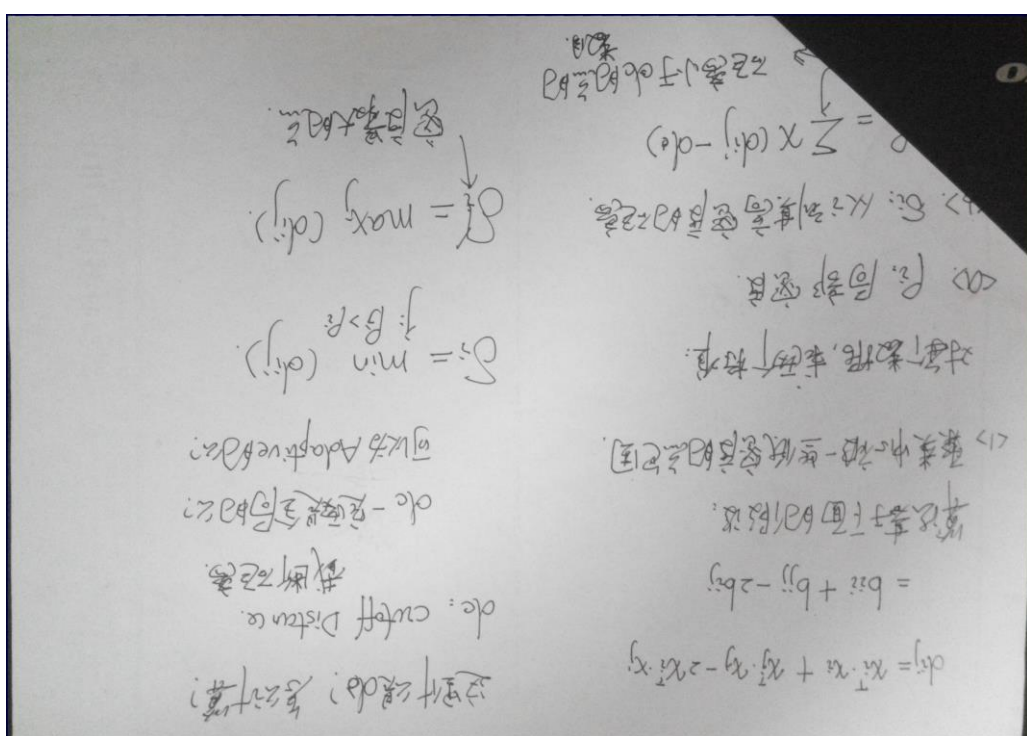 dij = xiᵀ·xi + xjᵀ·xj - 2xiᵀ·xj
= bii + bjj - 2bij
算法基于下面的假设:
<1> 聚类中心被一些低密度的点包围.
对每个数据,求两个标准:
<a> ρi, 局部密度.
<b>. δi: 从i到更高密度的距离.
= Σ χ(dij - dc)
距离小于dc的点的
数目.
这里什么是dc? 怎么计算?
dc: cutoff Distance.
截断距离.
dc一定要是全局的么?
可以为Adaptive的么?
δi = min (dij)
j: ρj>ρi
δi = maxj (dij).
密度最大的点.